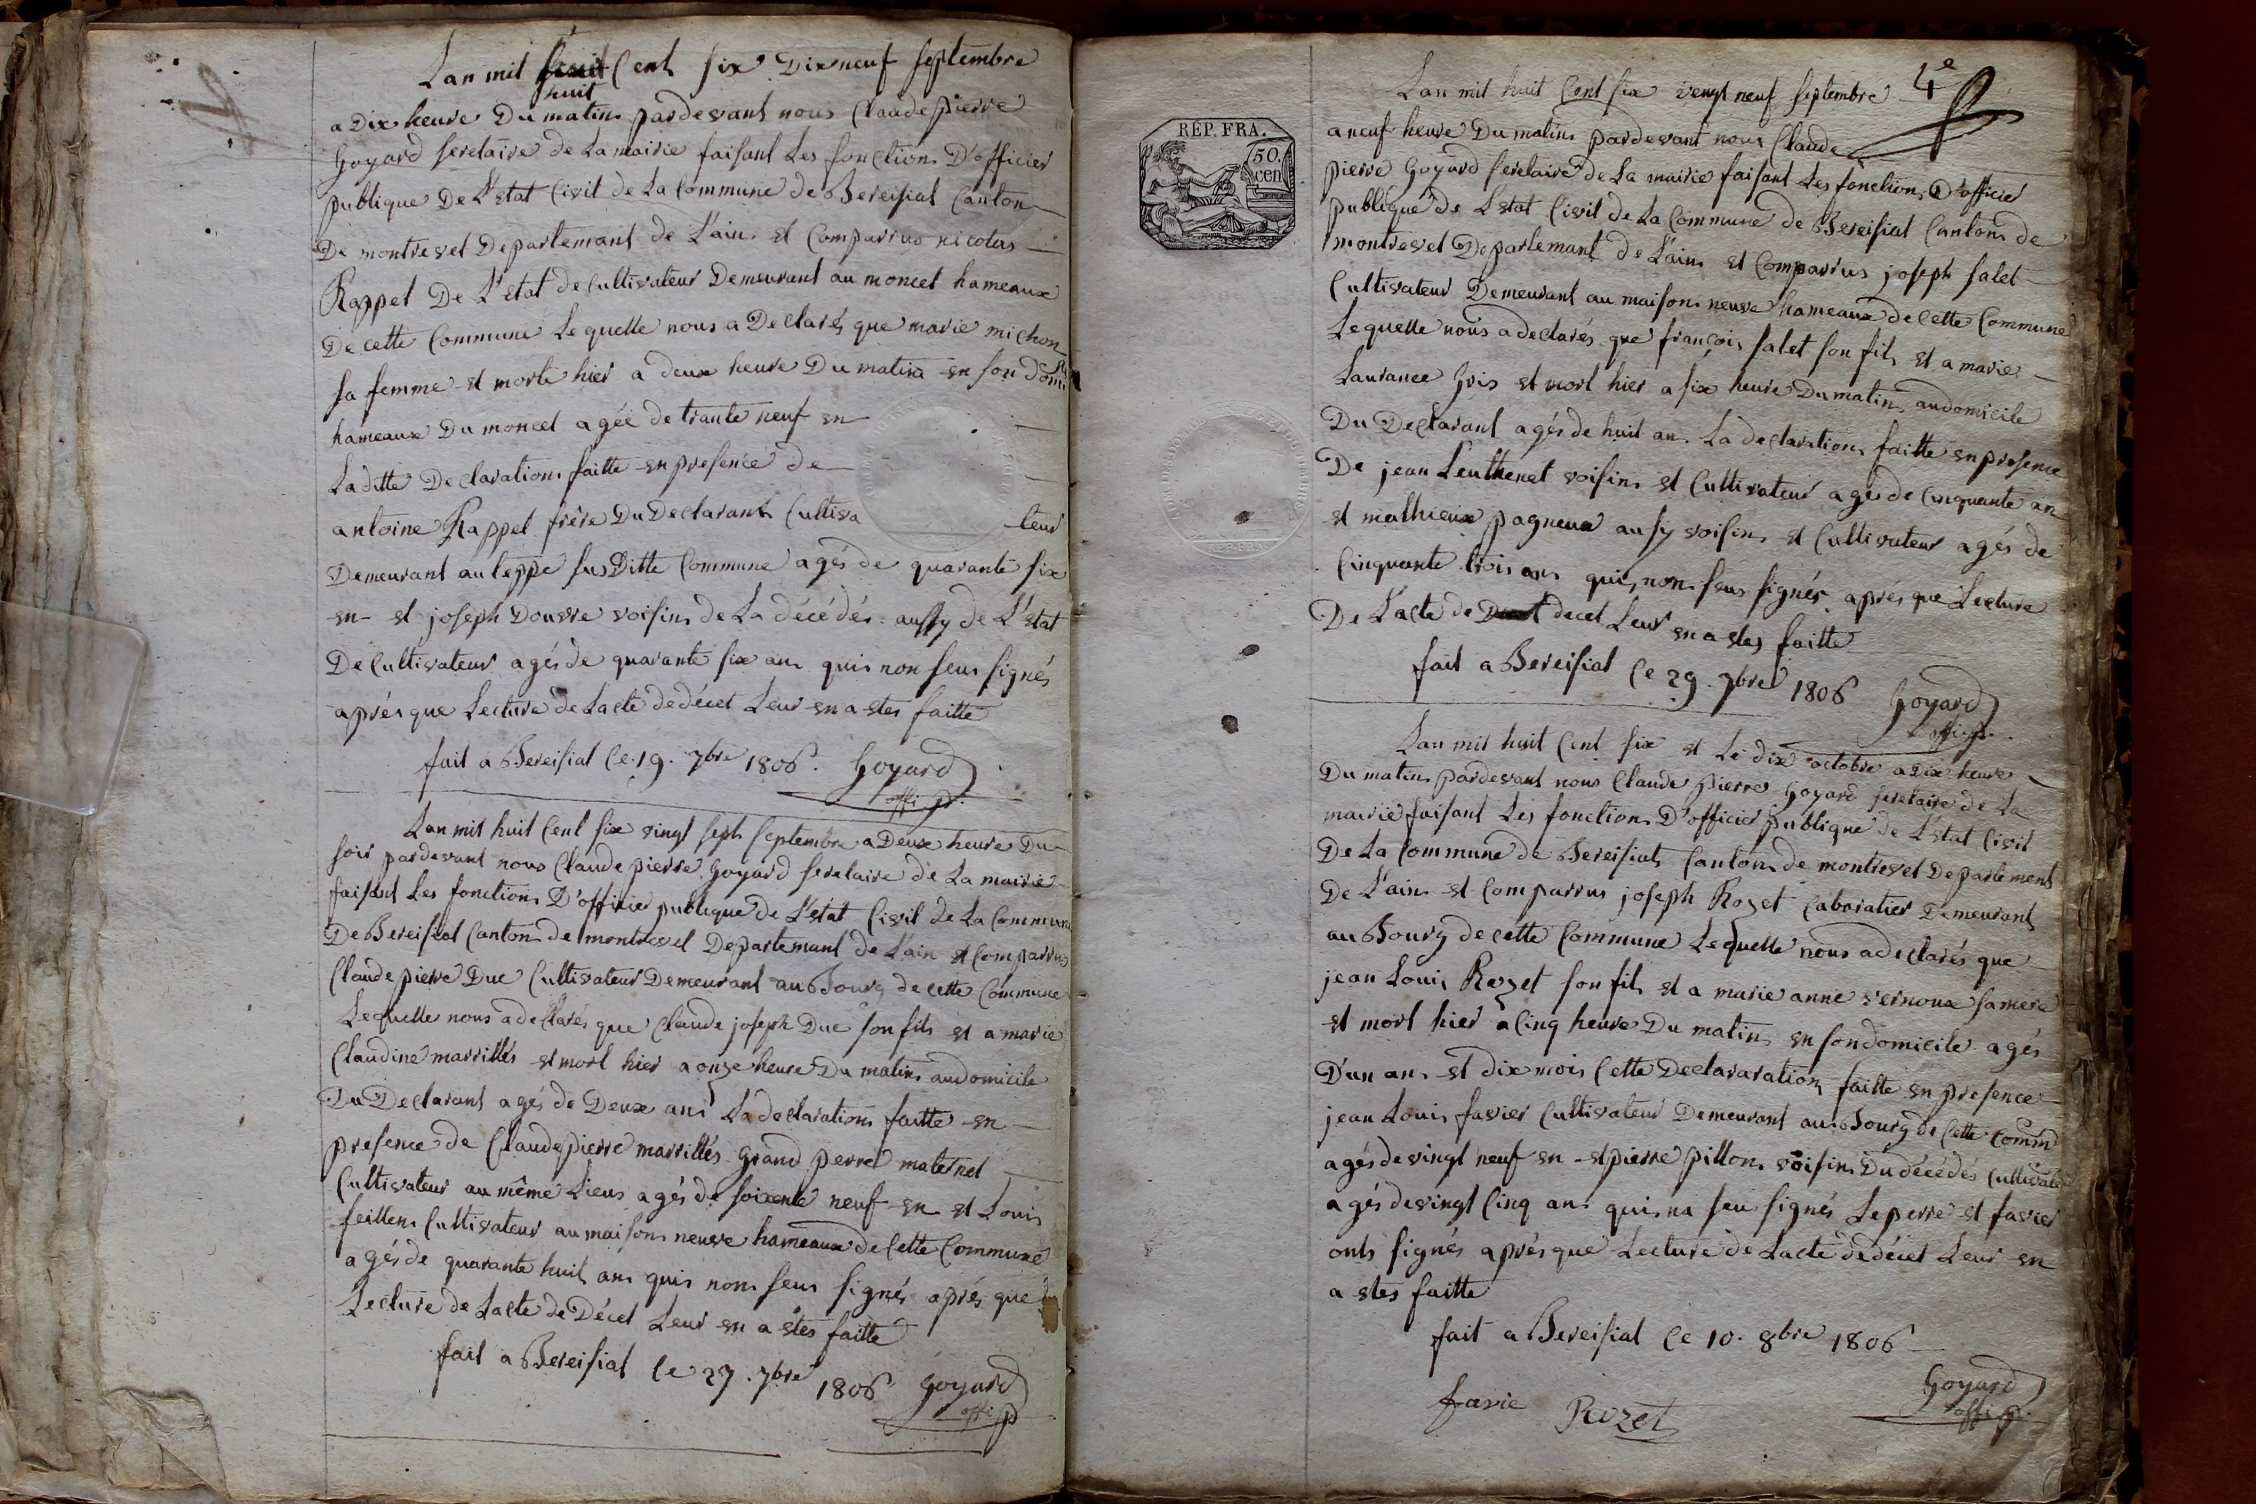 Lan mil huit Cent six Dixneuf septembre
huit
a Dix heure Du matin pardevant nous Claude pierre
Goyard seretaire de La mairie faisant Les fonction D'officier
publique De L'Etat Civil de La Commune de Bereisiat Canton
De montrevel Departemant de L'ain et Comparrus nicolas
Rappet De L'Etat de Cultivateur Demeurant au moncel hameaux
De cette Commune Le quelle nous a Declarés que marie michon
sa femme et morte hier a deux heure Du matin en son domi
hameaux Du moncel agée de trante neuf en
La ditte Declaration faitte en presence de
antoine Rappet frère Du Declarant Cultiva teur
Demeurant au leppe susditte Commune agés de quarante six
en et joseph Douvre voisin de La décédés aussy de L'Etat
De Cultivateur agés de quarante six an qui non seus signés
aprés que Lecture de Lacte de décet Leur en a etes faitte
fait a Bereisiat Ce 19. 7bre 1806. Goyard
offi. p.
Lan mil huit Cent six vingt sept septembre a Deux heure Du
soir pardevant nous Claude pierre Goyard seretaire de La mairie
faisant Les fonction D'officier publique de L'état Civil de La Commune
De Bereisiat Canton de montrevel Departemant de L'ain et Comparrus
Claude pierre Duc Cultivateur Demeurant au Bourg de cette Commune
Lequelle nous a declarés que Claude joseph Duc son fils et a marie
Claudine marrillés et mort hier a onze heure Du matin au domicile
Du Declarant agés de Deux ans La declaration faitte en
presence de Claude pierre marrillés Grand perre maternel
Cultivateur au même Lieus agés de soixente neuf en et Louis
feillens Cultivateur au maison neuve hameaux de Cette Commune
agés de quarante huit an qui non seus signés aprés que
Lecture de Lacte de Décet Leur en a étes faitte
fait a Bereisiat Ce 27. 7bre 1806 Goyard
offi p
4e
Lan mil huit Cent six vengt neuf septembre
a neuf heure Du matin pardevant nous Claude
pierre Goyard seretaire de La mairie faisant Les fonction D'officier
publique de L'etat Civil de La Commune de Bereisiat Canton de
montrevel Departemant de L'ain et Comparrus joseph salet
Cultivateur Demeurant au maison neuve hameaux de Cette Commune
Lequelle nous a declarés que françois salet son fils et a marie
Laurance Gris et mort hier a six heure Du matin au domicile
Du Declarant agés de huit an La declaration faitte en presence
De jean Leuthenet voisin et Cultivateur agés de Cinquante an
et mathieux pagneux aussy voisin et Cultivateur agés de
Cinquante trois an qui non seus signés aprés que Lecture
De L'acte de decet Leur en a etes faitte
fait a Bereisiat Ce 29. 7bre 1806 Goyard
offi. p.
Lan mil huit Cent six et Le dix octobre a Dix heure
Du matin pardevant nous Claude pierre Goyard seretaire de La
mairie faisant Les fonction D'officier publique de L'etat Civil
De La Commune de Bereisiat Canton de montrevel Departement
De L'ain et Comparrus joseph Rozet Cabaratier Demeurant
au Bourg de cette Commune Lequelle nous a declarés que
jean Louis Rozet son fils et a marie anne vernoux sa mere
et mort hier a Cinq heure Du matin en son domicile agés
D'un an et dix mois Cette Declararation faitte en presence
jean Louis favier Cultivateur Demeurant au Bourg de Cette Comm
agés de vingt neuf en et pierre pillon voisin Du décédés Cultivateur
agés de vingt Cinq an qui na seu signés Le perre et favier
onts signés aprés que Lecture de Lacte de décet Leur en
a etes faitte
fait a Bereisiat Ce 10. 8bre 1806
Goyard
offi p.
favie Rozet
RÉP. FRA.
50.
cen